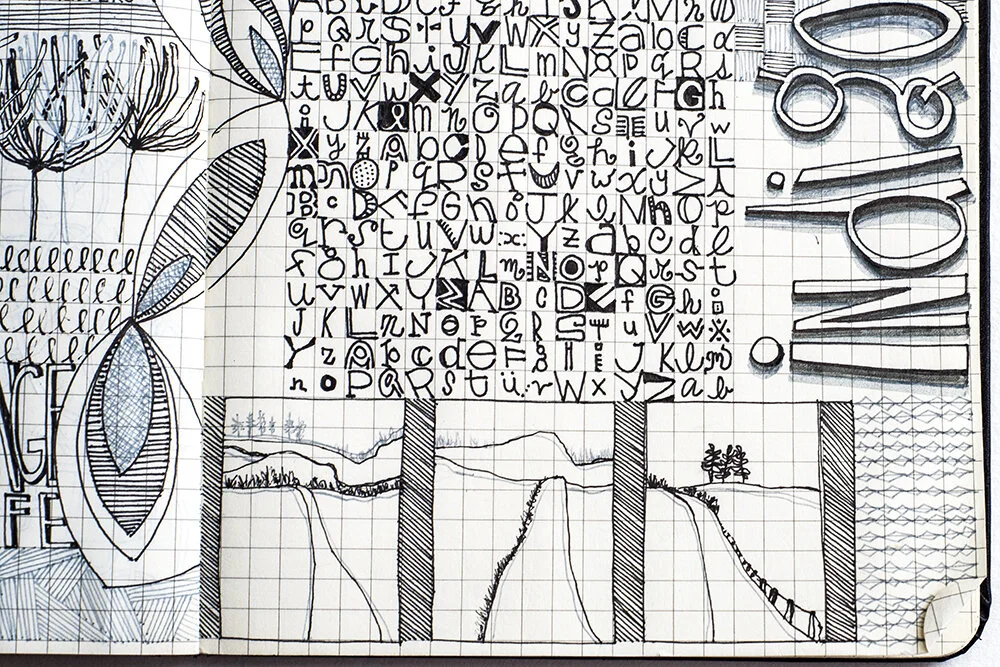 p Q R S t u V W X y Z a b C d
E f G h i J K L m N O p q R s
t U V w X y z a b C d e f G h
i J K l m n O p Q R S T u v w
X y z a b C d e f g h i J k L
m n o p q R S t U v w x y Z A
B c D e f G h i J k l M n O p
q r S t u V w x Y z a b c d e
f g h I J K L m N o p Q r s t
u v W X Y Z A B c D E f G h i
J K L n N O P Q R S T u V w x
Y z A b c d e F g H i J K l m
n o P Q R s t ü v W x y Z a b
iNdigo
NGE
FE